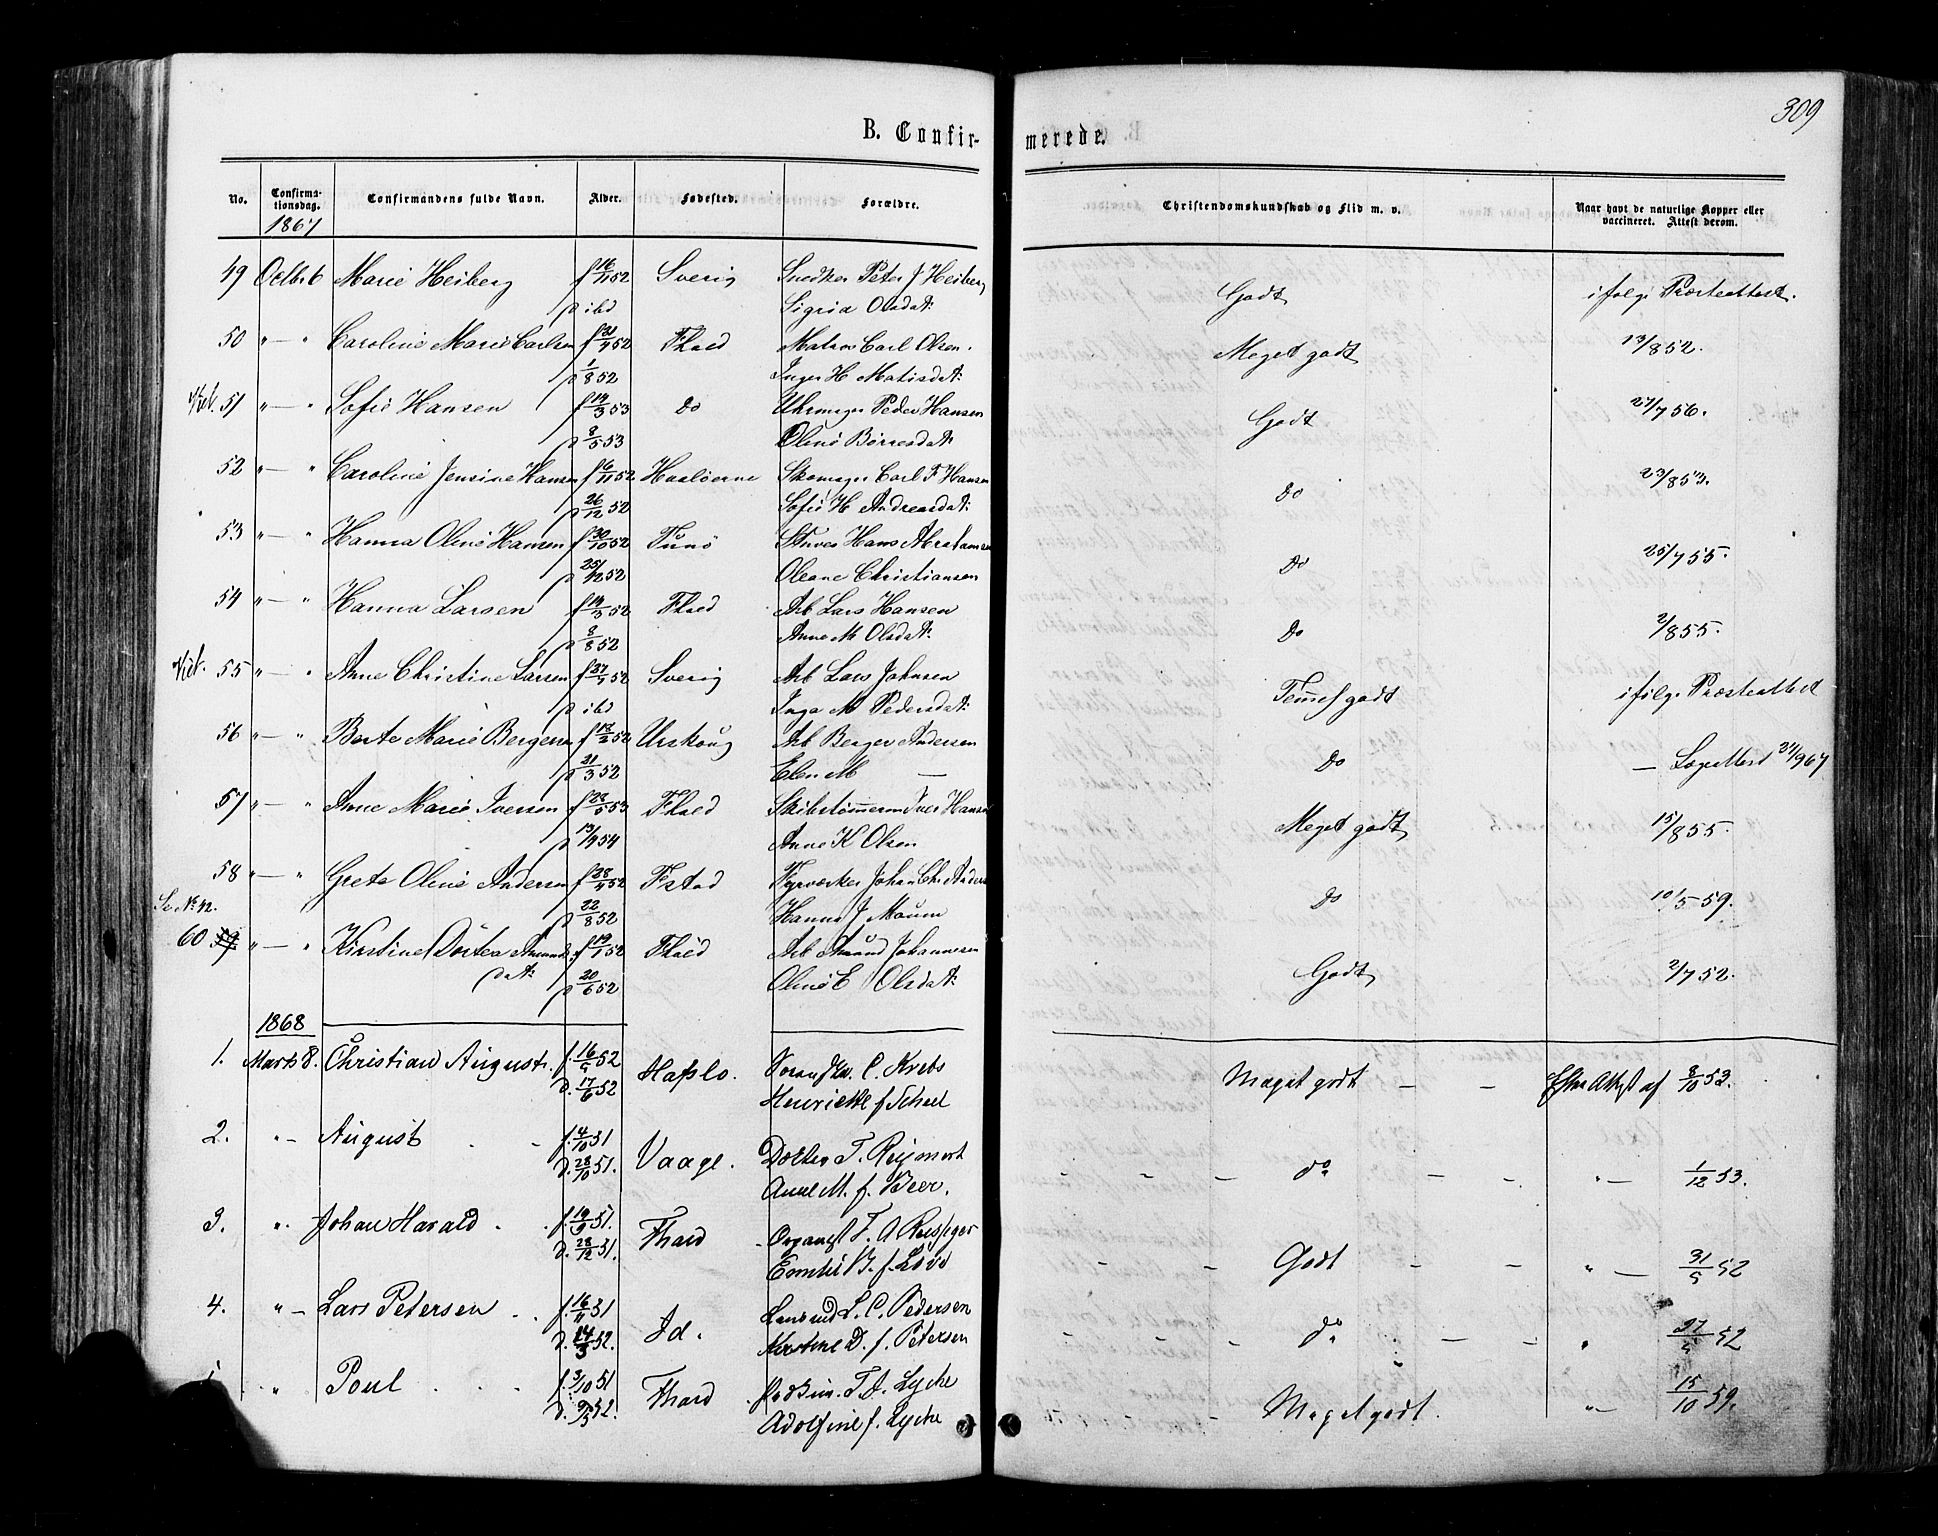 309
B. Confirmerede.
No. Confirmationsdag. Confirmandens fulde Navn. Alder. Fødested. Forældre. Christendomskundskab og Flid m. v. Naar havt de naturlige Kopper eller vaccineret. Attest derom.
1867
49 Octbr 6 Marie Heiberg f 16/11 52 Sverig Snedker Peter J Heiberg Godt ifølge Præsteattest.
p ibd Sigria Olsdatr
50 " — " Caroline Marie Carlsen f 21/4 52 Fhald Matros Carl Olsen. Meget godt 13/8 52.
p 1/8 52 Inger H Matisdatr
51 " — " Sofie Hansen f 14/3 53 Do Uhrmager Peder Hansen Godt 27/7 56.
p 8/5 53 Oline Børresdatr
52 " — " Caroline Jensine Hansen f 6/11 52 Hvaløerne Skomager Carl F Hansen Do 23/8 53.
p 26/12 52 Sofie H Andreasdatr
53 " — " Hanna Oline Hansen f 30/10 52 Tunø Stuer Hans Abrahamsen Do 25/7 55.
p 25/12 52 Oleane Christiansen
54 " — " Hanna Larsen f 14/3 52 Fhald Arb Lars Hansen Do 2/8 55.
p 8/8 52 Anne M Olsdatr
55 " — " Anne Christine Larsen f 27/4 52 Sverig Arb Lars Johnsen Temmel godt ifølge Præsteattest
p ibd Inga M Pedersdatr
56 " — " Berte Marie Bergersen f 12/2 52 Urskoug Arb Berger Andersen Do — Lægeattest 24/9 67
p 21/3 52 Elen M —
57 " — " Anne Marie Iversen f 28/5 53 Fhald Skibstømmerm Iver Hansen Meget godt 15/8 55.
p 13/4 54 Anne K Olsen
58 " — " Grete Oline Andersen f 28/4 52 Fstad Fyrværker Johan Chr Anders Do 10/5 59.
p 22/8 52 Hanna J Maum
Se No 42.
60 59 " — " Kirstine Dortea Amunds- f 19/1 52 Fhald Arb Amund Johannesen Godt 2/7 52.
datr p 20/6 52 Oline E Olsdatr
1868
1. Marts 8. Christian August. f. 16/5 52 Hafslo. C. Krebs Meget godt — — Efter Attest af 8/10 53.
d. 17/6 52 Henriette f Scheel
2. " — August f. 4/10 51 Vaage. Doktor T. Reymert do — — " — 1/12 53.
d. 28/10 51. Anne M. f. Beer.
3. " Johan Harald f. 19/9 51. Fhald Organist F. A Reissiger Godt — — " — 31/5 52
d. 28/12 51. Emilie B. f. Lövo
4. " — Lars Petersen f. 16/11 51 Id. L. C. Pedersen do — — " 27/5 52
d. 14/3 52. Kirstine D. f. Petersen
" Poul f. 3/10 51 Fhald T. J. Lyche Meget godt. " — 15/10 59.
Adolfine f. Lyche